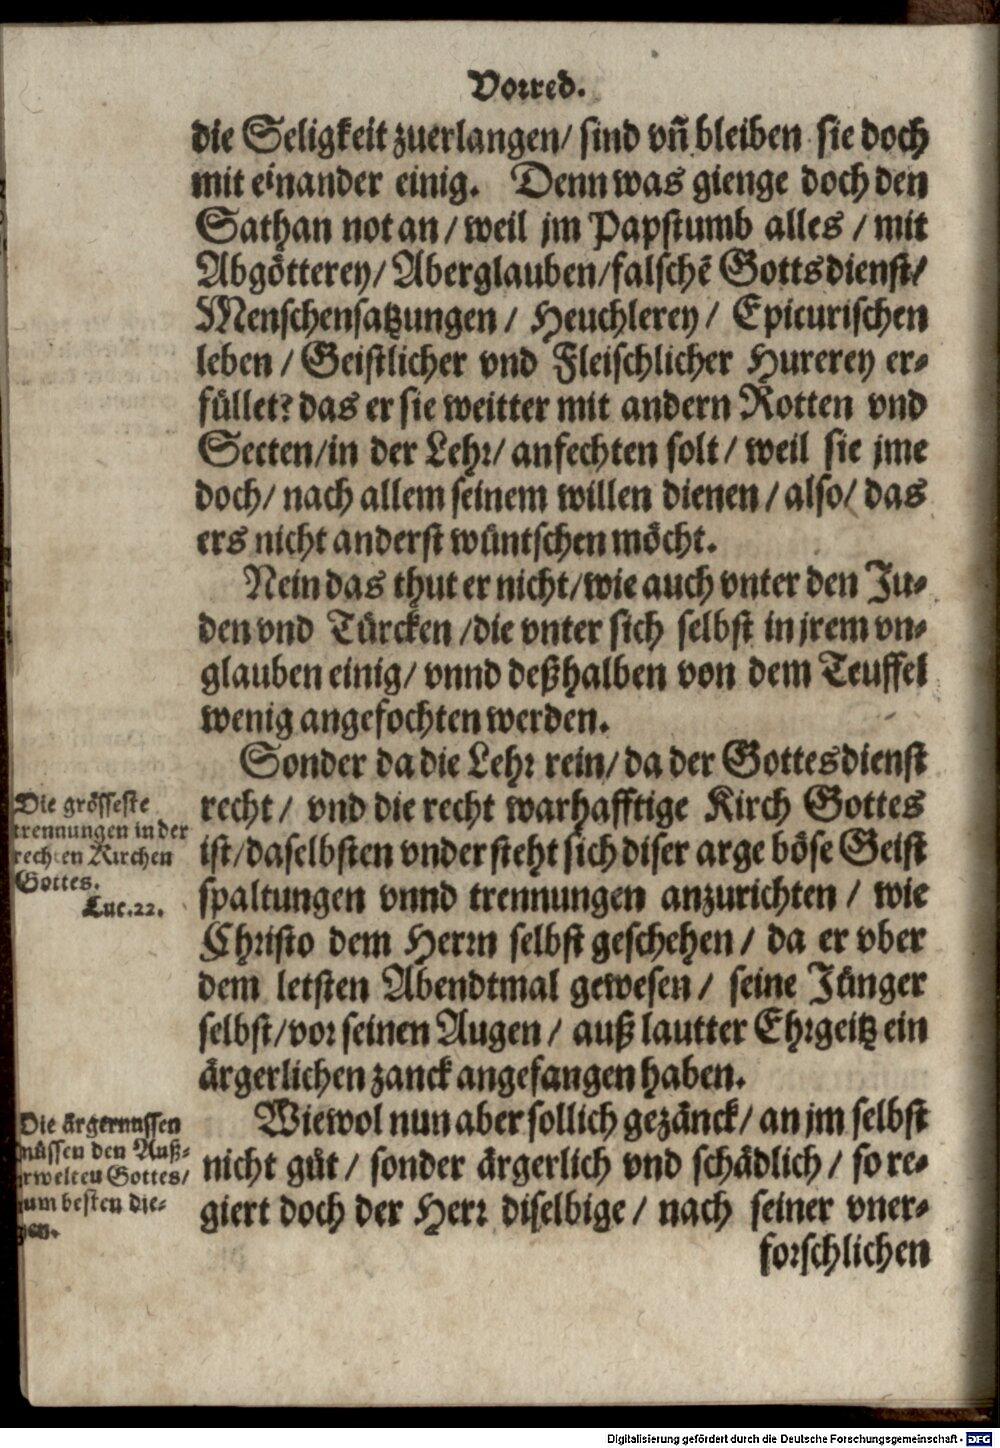 Vorred.
die Seligkeit zuerlangen/ sind vñ bleiben sie doch
mit einander einig. Denn was gienge doch den
Sathan not an/ weil jm Papstumb alles / mit
Abgötterey/ Aberglauben/falschẽ Gottsdienst/
Menschensatzungen / Heuchlerey / Epicurischen
leben / Geistlicher vnd Fleischlicher Hurerey er-
füllet? das er sie weitter mit andern Rotten vnd
Secten/in der Lehr/ anfechten solt / weil sie jme
doch/ nach allem seinem willen dienen / also/ das
ers nicht anderst wüntschen möcht.
Nein das thut er nicht/wie auch vnter den Ju-
den vnd Türcken /die vnter sich selbst in jrem vn-
glauben einig/ vnnd deßhalben von dem Teuffel
wenig angefochten werden.
Sonder da die Lehr rein/ da der Gottesdienst
recht / vnd die recht warhafftige Kirch Gottes
ist/daselbsten vndersteht sich diser arge böse Geist
spaltungen vnnd trennungen anzurichten / wie
Christo dem Herrn selbst geschehen / da er vber
dem letsten Abendtmal gewesen / seine Jünger
selbst/vor seinen Augen / auß lautter Ehrgeitz ein
ärgerlichen zanck angefangen haben.
Wiewol nun aber sollich gezänck/ an jm selbst
nicht güt / sonder ärgerlich vnd schädlich / so re-
giert doch der Herr diselbige / nach seiner vner-
forschlichen
Die grösseste
trennungen in der
rechten Kirchen
Gottes.
Luc.22.
Die ärgernussen
müssen den Auß-
rwelten Gottes/
um besten die-
nen.
Digitalisierung gefördert durch die Deutsche Forschungsgemeinschaft - DFG